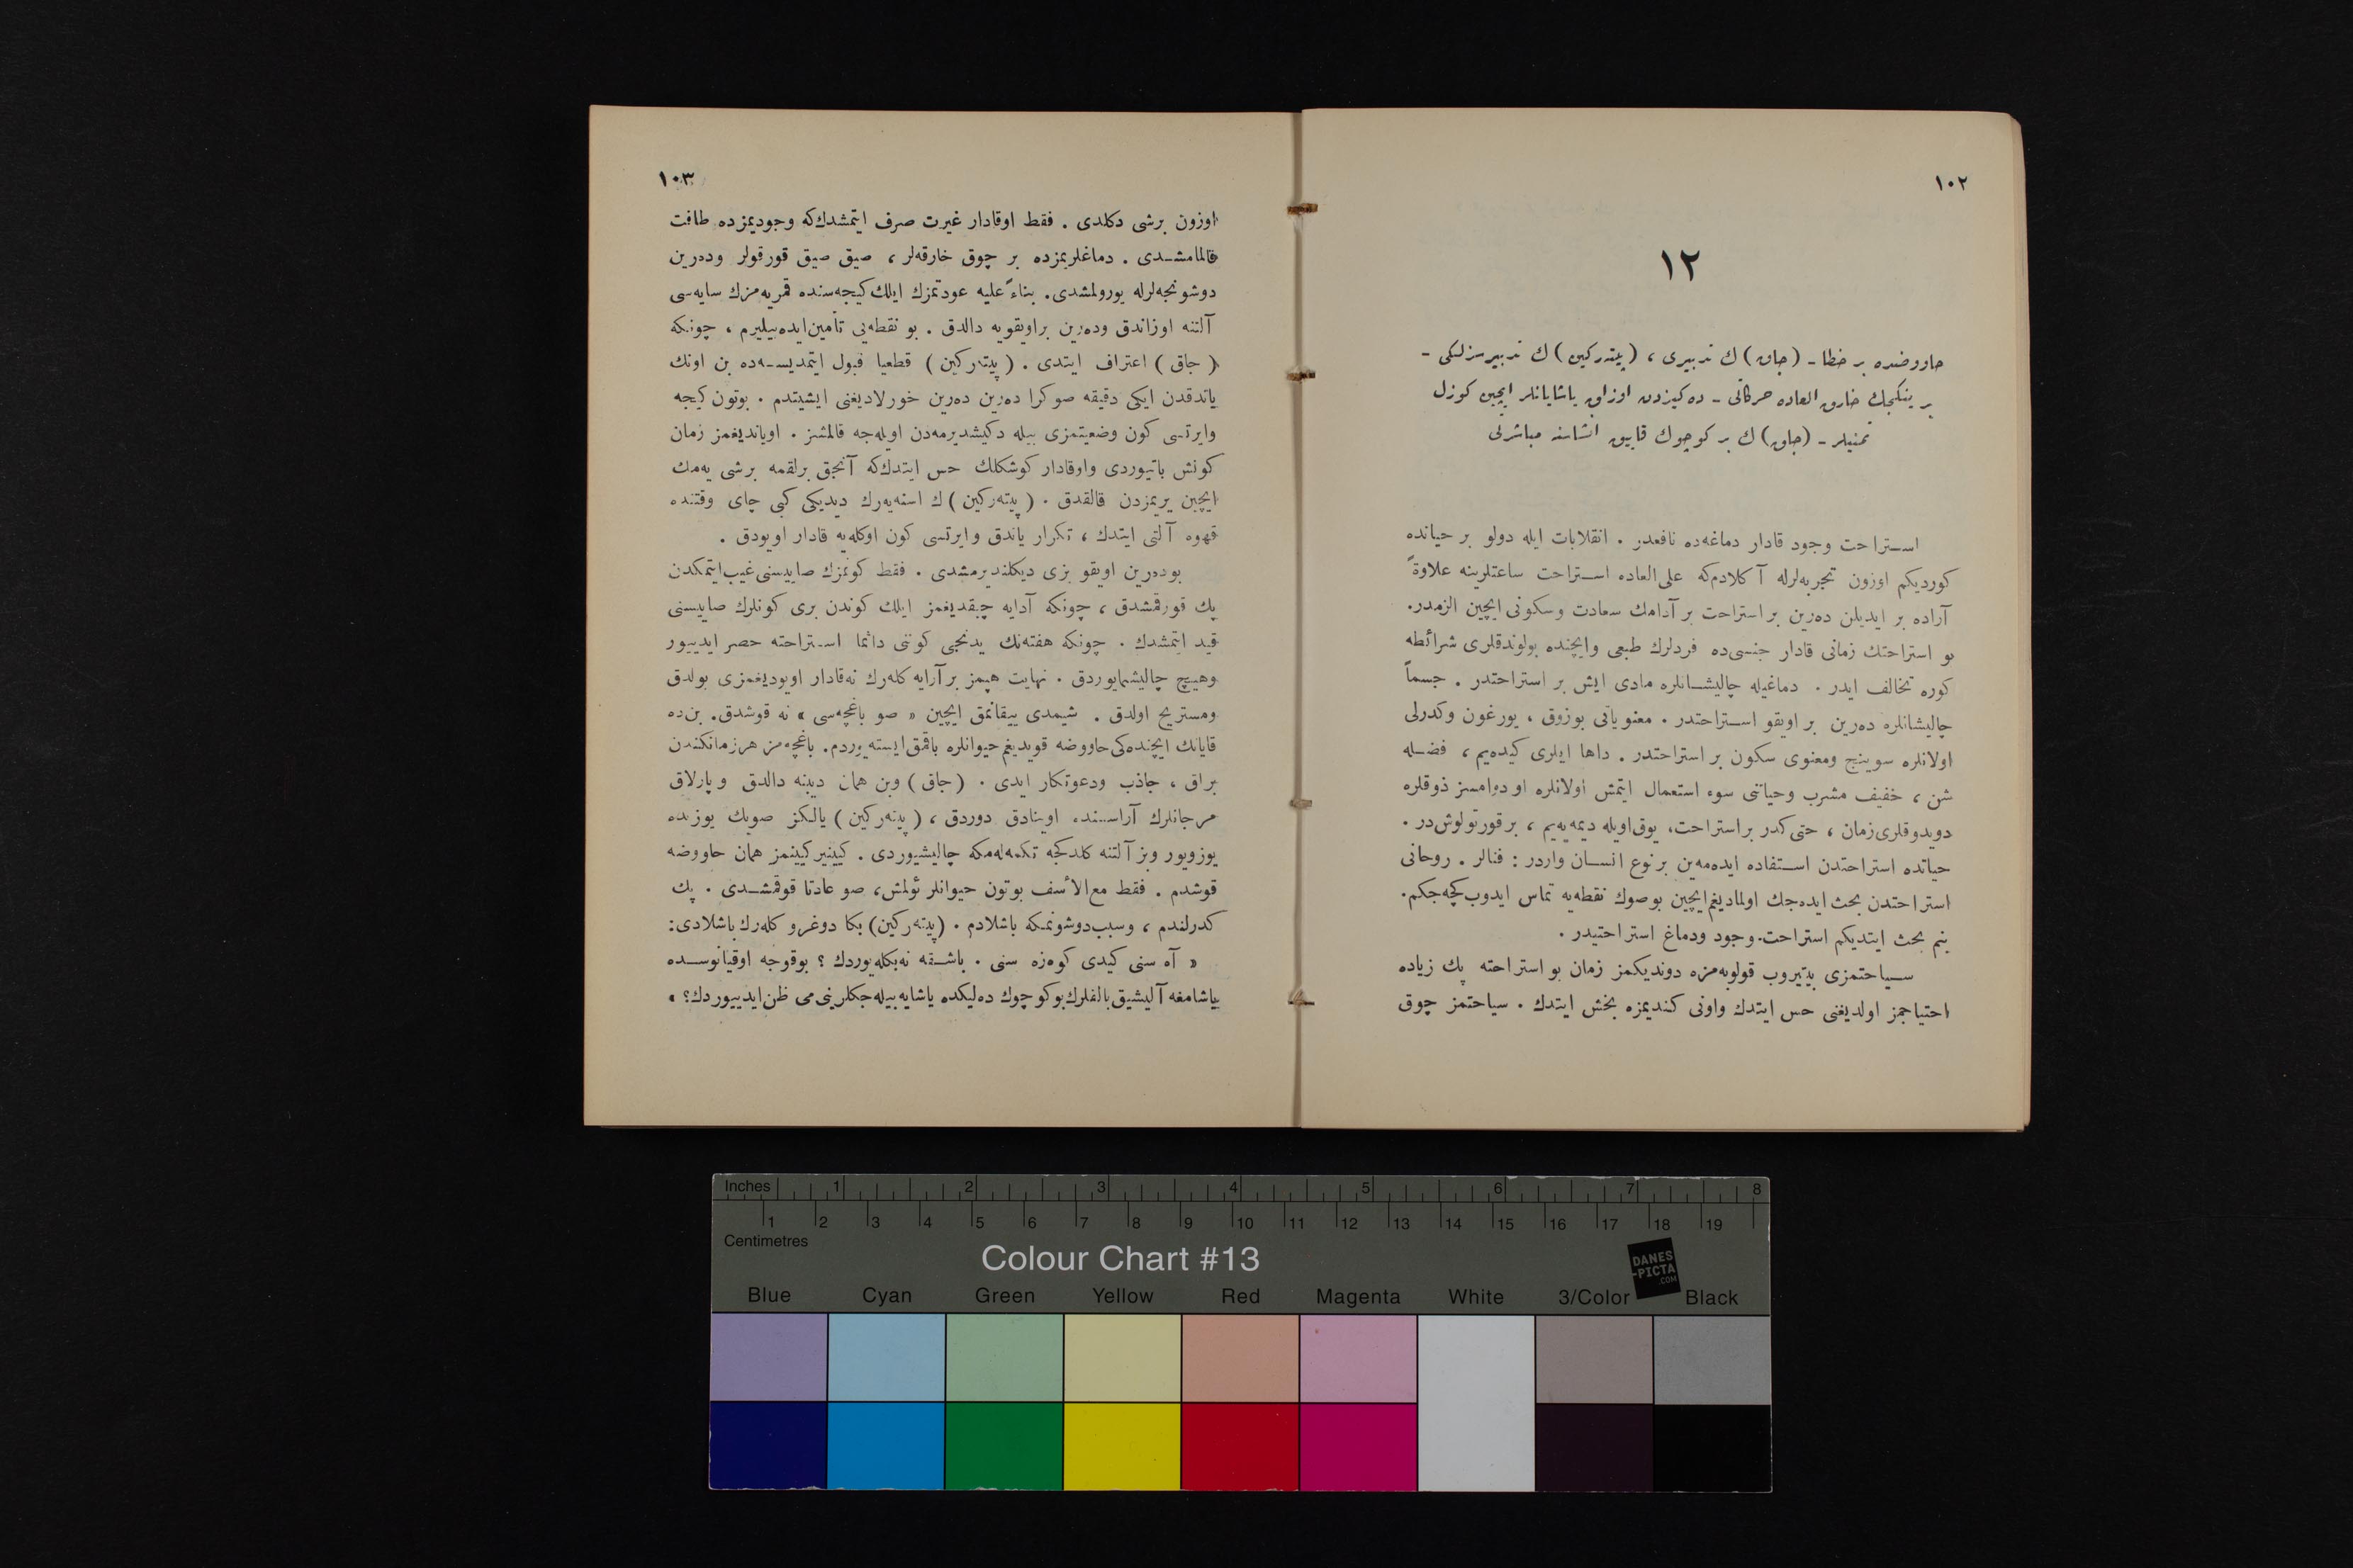 ١٠٢
١٢
حاووضده بر خطا ـ (جاق) ك تدبیری ، (پیتەركین) ك تدبیرسزلكی ـ
بر ینكجك خارق العاده حركاتی ـ دەكیزدن اوزاق یاشایانلر ایچین كوزل
تمنیلر ـ (جاق) ك بر كوچوك قاییق انشاسنه مباشرتی
استراحت وجود قادار دماغەده نافعدر . انقلابات ایله دولو بر حیاتده
كوردیكم اوزون تجربەلرله آكلادم‌كه علی‌العاده استراحت ساعتلرینه علاوةً
آراده بر ایدیلن دەرین بر استراحت بر آدامك سعادت وسكونی ایچین الزمدر.
بو استراحتك زمانی قادار جنسی‌ده فردلرك طبعی وایچنده بولوندقلری شرائطه
كوره تخالف ایدر . دماغیله چالیشانلره مادی ایش بر استراحتدر . جسماً
چالیشانلره دەرین بر اویقو استراحتدر . معنویاتی بوزوق ، یورغون وكدرلی
اولانلره سوینج ومعنوی سكون بر استراحتدر . داها ایلری كیدەیم ، فضله
شن ، خفیف مشرب وحیاتنی سوء استعمال ایتمش اولانلره او دوامسز ذوقلره
دویدوقلری زمان ، حتی كدر بر استراحت، یوق اویله دیمەیەیم ، بر قورتولوش‌در .
حیاتده استراحتدن استفاده ایدەمەین بر نوع انسان واردر : فنالر . روحانی
استراحتدن بحث ایدەجك اولمادیغم ایچین بوصوك نقطەیه تماس ایدوب كچەجكم.
بنم بحث ایتدیكم استراحت وجود ودماغ استراحتیدر .
سیاحتمزی بیتیروب قولوبەمزه دوندیكمز زمان بو استراحته پك زیاده
احتیاجمز اولدیغنی حس ایتدك واونی كندیمزه بخش ایتدك . سیاحتمز چوق
١٠٣
اوزون برشی دكلدی . فقط اوقادار غیرت صرف ایتمشدك‌كه وجودیمزده طاقت
قالمامشدی . دماغلریمزده بر چوق خارقەلر ، صیق صیق قورقولر ودەرین
دوشونجەلرله یورولمشدی. بناءً علیه عودتمزك ایلك كیجەسنده قمریەمزك سایەسی
آلتنه اوزاندق ودەرین براویقویه دالدق . بو نقطەیی تأمین ایدەبیلیرم ، چونكه
( جاق ) اعتراف ایتدی . ( پیتەركین ) قطعیا قبول ایتمدیسەده بن اونك
یاتدقدن ایكی دقیقه صوكرا دەرین دەرین خورلادیغنی ایشیتدم . بوتون كیجه
وایرتسی كون وضعیتمزی بیله دكیشدیرمەدن اویلەجه قالمشز . اویاندیغمز زمان
كونش باتیوردی واوقادار كوشكلك حس ایتدك‌كه آنجق برلقمه برشی یەمك
ایچین یریمزدن قالقدق . ( پیتەركین ) ك اسنەیەرك دیدیكی كبی چای وقتنده
قهوه آلتی ایتدك ، تكرار یاتدق وایرتسی كون اوكلەیه قادار اویودق .
بودەرین اویقو بزی دیكلندیرمشدی . فقط كونمزك صاییسنی غیب ایتمكدن
پك قورقمشدق ، چونكه آدایه چیقدیغمز ایلك كوندن بری كونلرك صاییسنی
قید ایتمشدك . چونكه هفتەنك یدنجی كوننی دائما استراحته حصر ایدییور
وهیچ چالیشمایوردق . نهایت هپمز بر آرایه كلەرك نەقادار اویودیغمزی بولدق
ومستریح اولدق . شیمدی ییقانمق ایچین « صو باغچەسی » نه قوشدق. بن‌ده
قایانك ایچندەكی حاووضه قویدیغم حیوانلره باقمق ایستەیوردم. باغچەمز هرزمانكندن
براق ، جاذب ودعوتكار ایدی . ( جاق ) وبن همان دیبنه دالدق وپارلاق
مرجانلرك آراسنده اویناد‌ق دوردق ، ( پیتەركین ) یالكز صویك یوزنده
یوزویور وبز آلتنه كلدكجه تكمەلەمكه چالیشیوردی . كیینیر كیینمز همان حاووضه
قوشدم . فقط مع‌الأسف بوتون حیوانلر ئولمش، صو عادتا قوقمشدی . پك
كدرلندم ، وسبب دوشونمكه باشلادم . (پیتەركین) بكا دوغرو كلەرك باشلادی:
« آه سنی كیدی كوەزه سنی . باشقه نەبكلەیوردك ؟ بوقوجه اوقیانوسده
یاشامغه آلیشیق بالقلرك بو كوچوك دەلیكده یاشایەبیلەجكلرینی می ظن ایدییوردك؟ »
Inches 1 2 3 4 5 6 7 8
1 2 3 4 5 6 7 8 9 10 11 12 13 14 15 16 17 18 19
Centimetres
Colour Chart #13
DANES
-PICTA
.COM
Blue Cyan Green Yellow Red Magenta White 3/Color Black